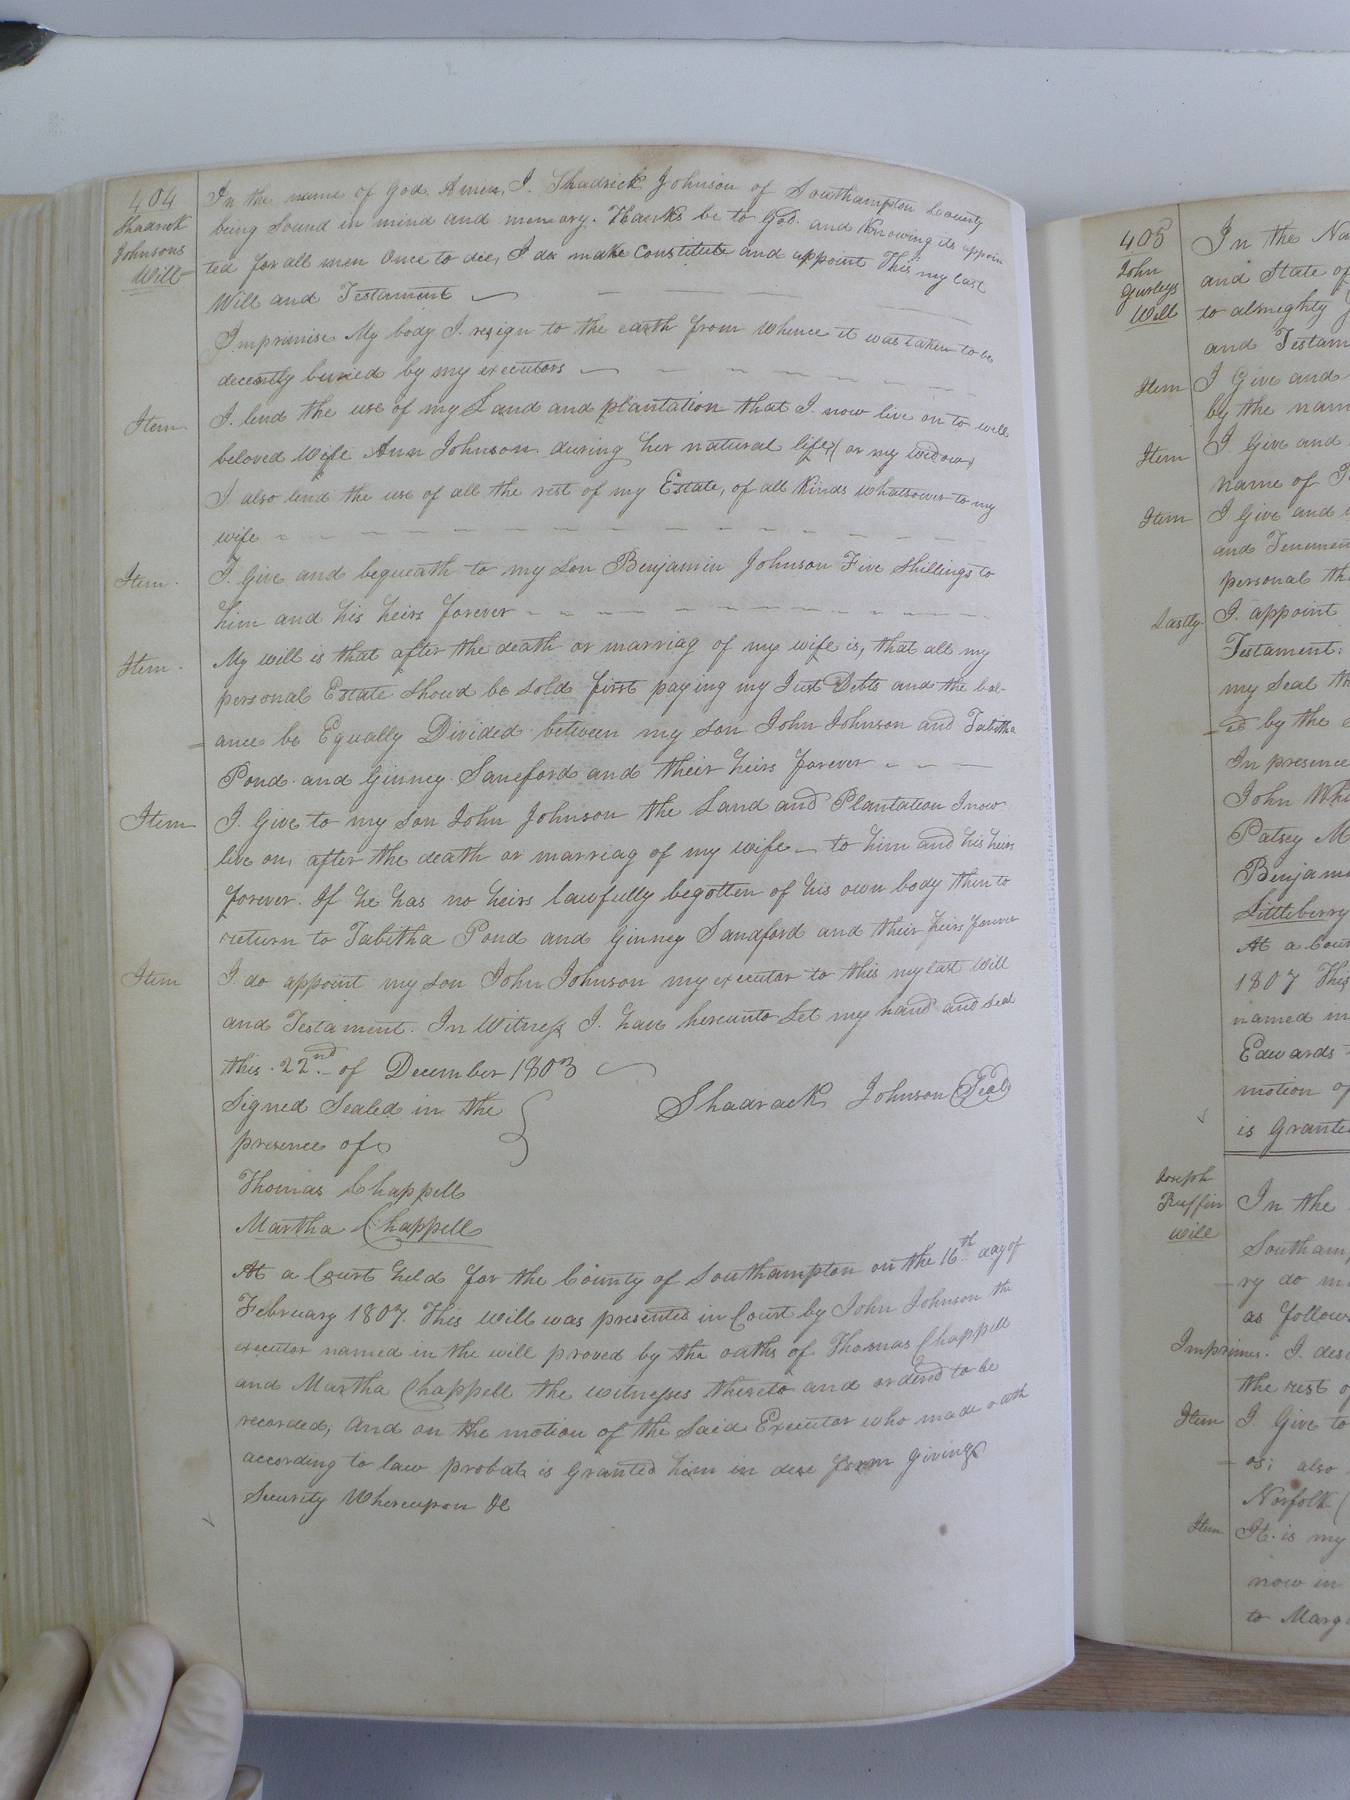 404
Shadrick
Johnsons
Will
In the name of God Amen, I. Shadrick Johnson of Southampton County
being Sound in mind and memory. Thanks be to God. and Knowing its appoin
ted for all men Once to die, I do make Constitute and appoint This my last
Will and Testament
Imprimise My body I resign to the earth from whence it was taken to be
decently buried by my executors
Item I. lend the use of my Land and plantation that I now live on to well
beloved Wife Ann Johnson during her natural life (or my widow)
I also lend the use of all the rest of my Estate, of all Kinds whatsoever to my
wife
Item. I Give and bequeath to my Son Benjamin Johnson Five Shillings to
him and his heirs forever
Item. My will is that after the death or marriag of my wife is, that all my
personal Estate Shoud be Sold first paying my Just Debts and the bal-
ance be Equally Divided between my son John Johnson and Tabitha
Pond. and Ginney Saneford and their heirs forever
Item I. Give to my Son John Johnson the Land and Plantation I now
live on, after the death or marriag of my wife to him and his heirs
forever. If he has no heirs lawfully begotten of his own body then to
return to Tabitha Pond and Ginney Sandford and their heirs forever
Item I. do appoint my son John Johnson my executor to this my last will
and Testament. In Witness I. have hereunto Set my hand and Seal
this 22nd. of December 1803
Signed Sealed in the Shadrack Johnson (Seal)
presence of
Thomas Chappell
Martha Chappell
At a Court held for the County of Southampton on the 16th day of
February 1807. This Will was presented in Court by John Johnson the
executor named in the will proved by the oaths of Thomas Chappell
and Martha Chappell the witnesses thereto and ordered to be
recorded; and on the motion of the Said Executor who made oath
according to law probate is Granted him in due form giving
Security Whereupon &c
405
John
Gurleys
Will
In the Na
and State of
to almighty
and Testam
Item I Give and
by the nam
Item I Give and
name of
Item I Give and
and Tenemen
personal th
Lastly I. appoint
Testament:
my Seal th
-ed by the
In presence
John Whi
Patsey M
Benjami
Littleberry
At a Cour
1807 This
named in
Edwards
motion of
is Grante
Joseph
Ruffin
will
In the
Southam
-ry do m
as follow
Imprimis. I. des
the rest of
Item I Give to
os; also
Norfolk (
Item It is my
now in
to Marg